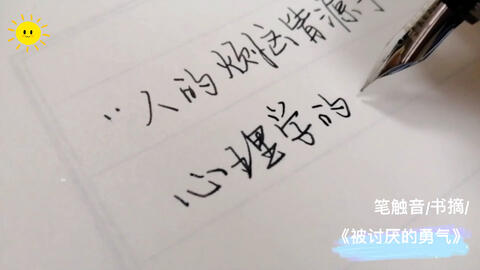 “人的烦恼皆源于
心理学的
笔触音/书摘/
《被讨厌的勇气》